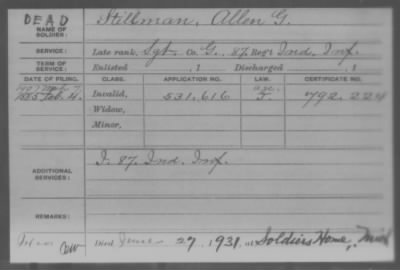 DEAD
NAME OF SOLDIER: Stillman, Allen G.
SERVICE: Late rank, Sgt. Co. G., 87 Reg't Ind. Inf.
TERM OF SERVICE: Enlisted , 1 Discharged , 1
DATE OF FILING. CLASS. APPLICATION NO. LAW. CERTIFICATE NO.
1907
1885 Feb. 4. Invalid, 531.616 792.224
Widow,
Minor,
ADDITIONAL SERVICES: I. 87. Ind. Inf.
REMARKS:
Died June 27, 1931, at Soldiers Home,